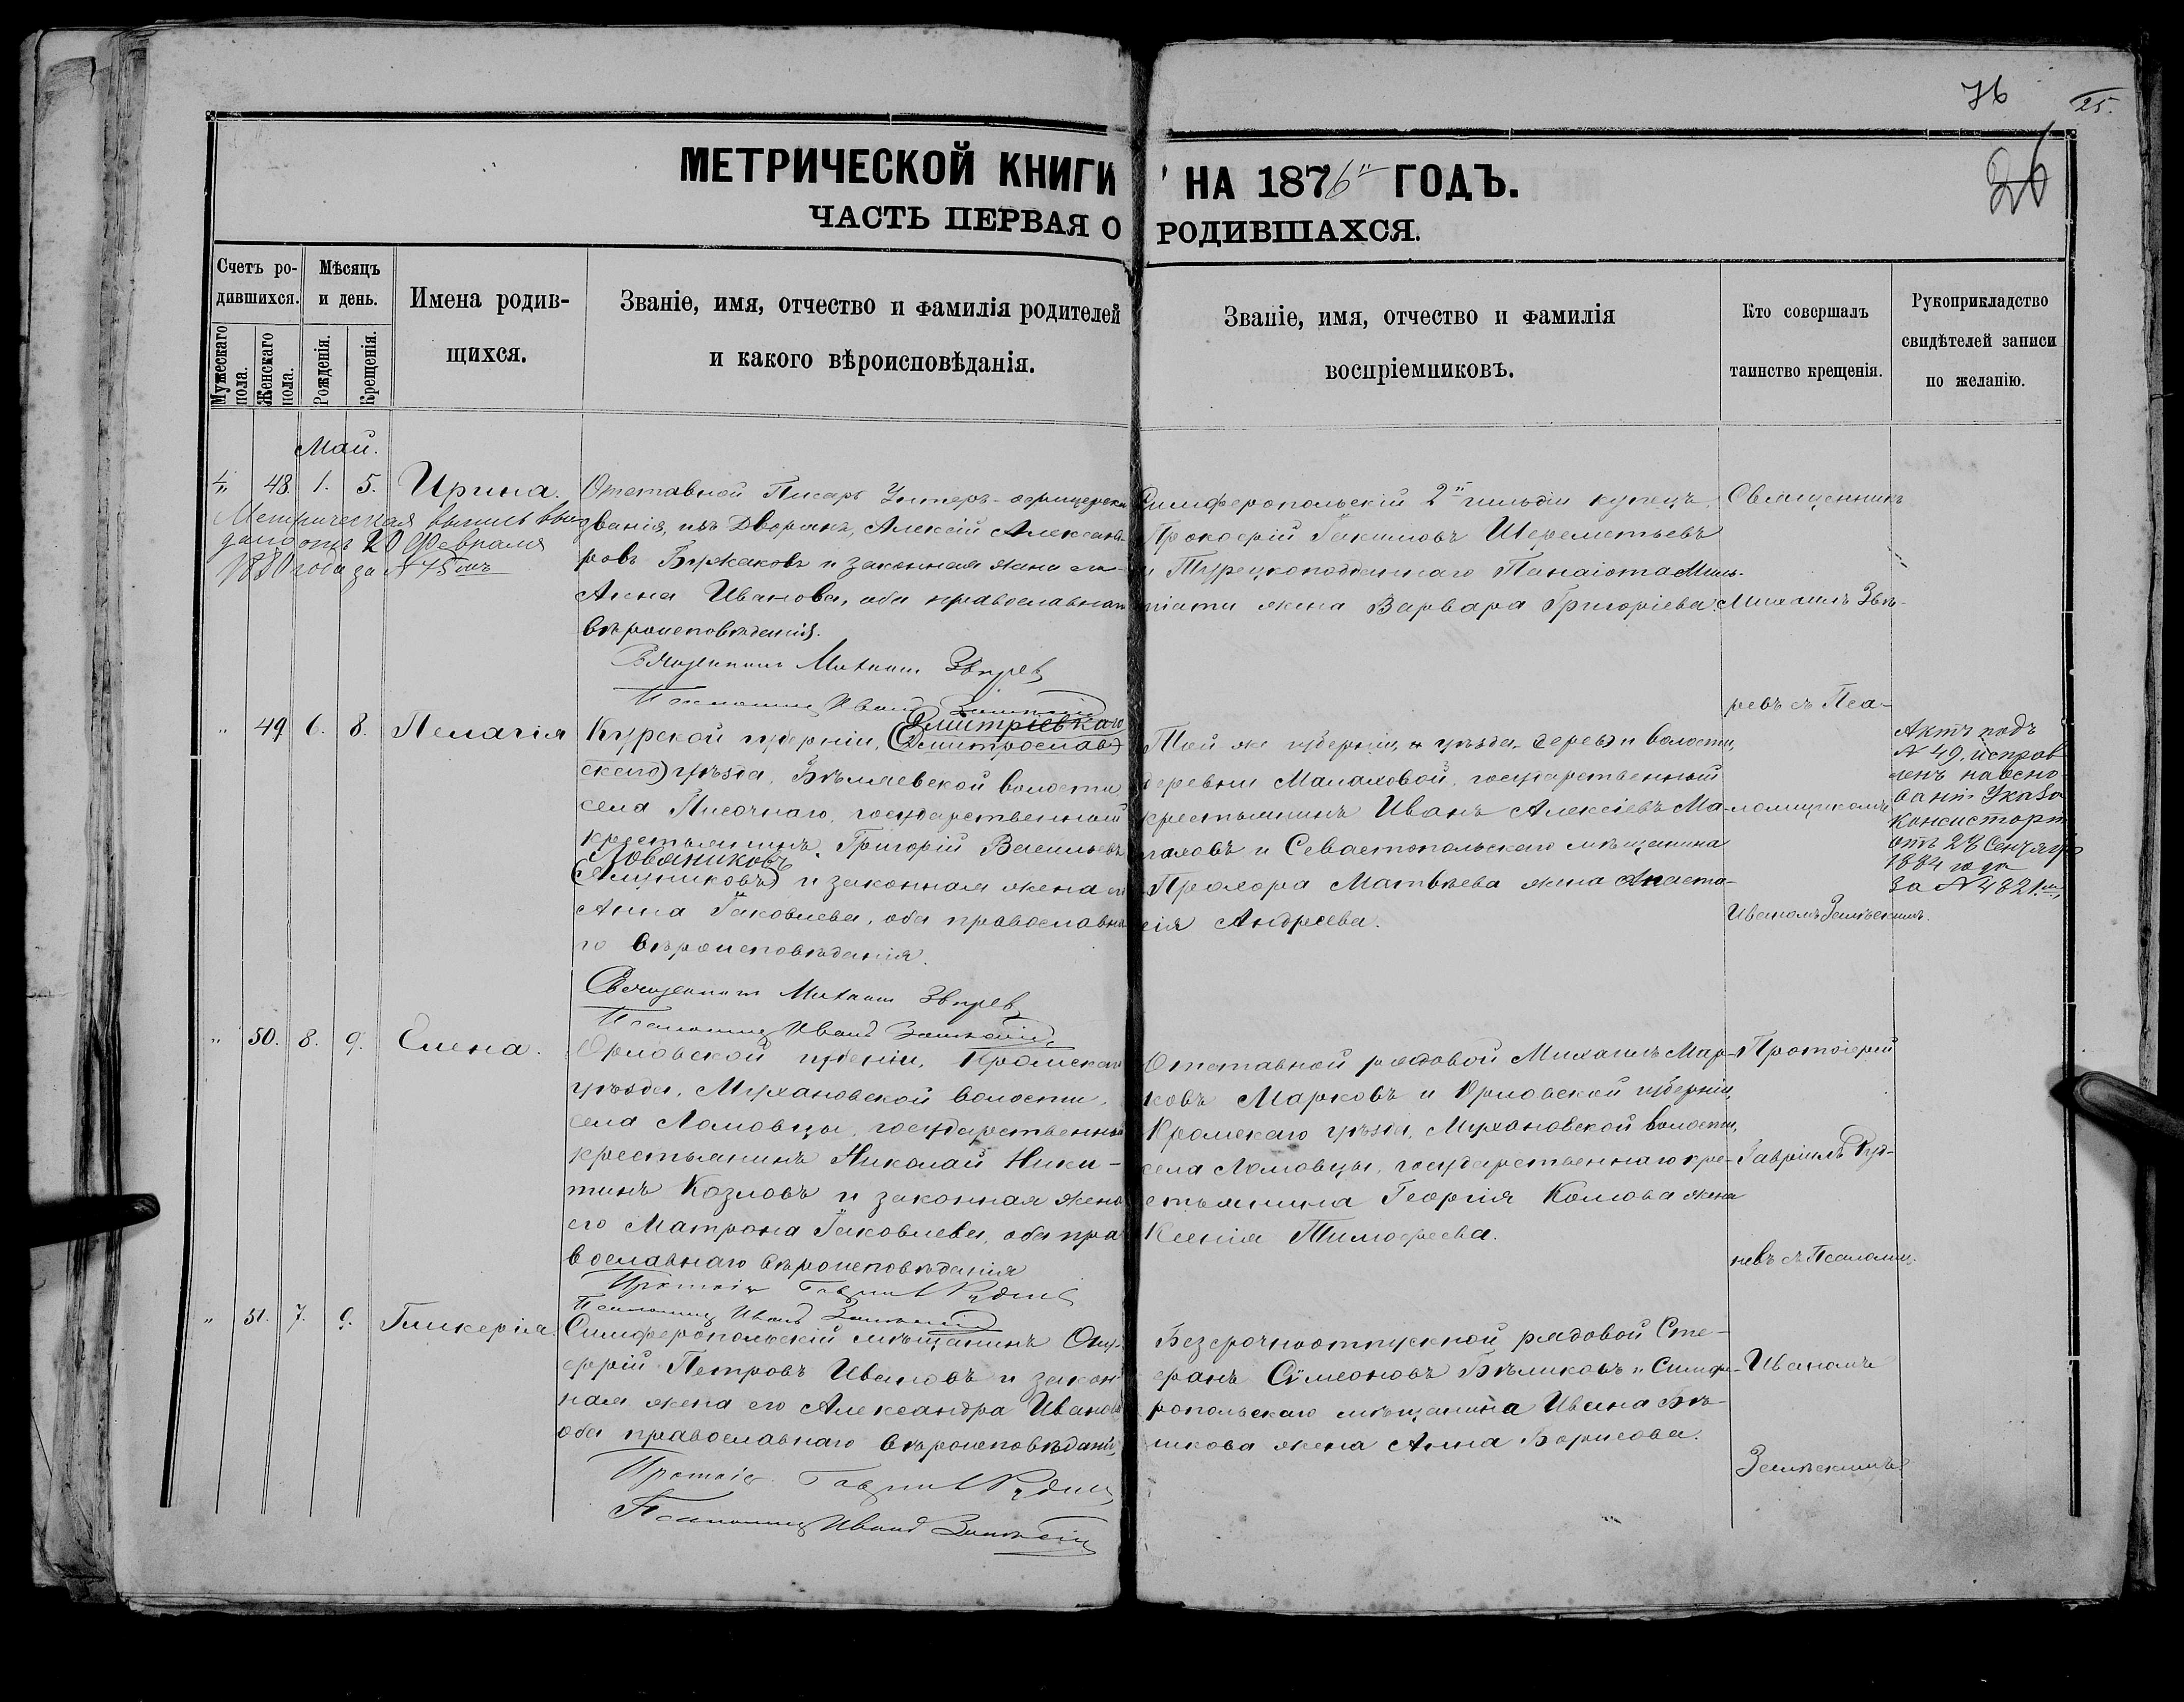 76
25.
26
МЕТРИЧЕСКОЙ КНИГИ НА 1876й ГОДЪ.
ЧАСТЬ ПЕРВАЯ О РОДИВШАХСЯ.
Счетъ родившихся.
Мужескаго пола.
Женскаго пола.
Мѣсяцъ и день.
Рожденія.
Крещенія.
Имена родив-
щихся.
Званіе, имя, отчество и фамилія родителей
и какого вѣроисповѣданія.
Званіе, имя, отчество и фамилія
воспріемниковъ.
Кто совершалъ
таинство крещенія.
Рукоприкладство
свидѣтелей записи
по желанію.
Май.
48. 1. 5. Ирина.
Метрическая выпись вы-
дана отъ 20 Февраля
1880 года за №
Отставной Писарь Унтеръ-офицерска
званія, изъ Дворянъ, Алексій Александ-
ровъ и законная жена его
Анна Иванова, оба православнаго
вѣроисповѣданія.
Священникъ Михаилъ Звѣревъ
Псаломщикъ Иванъ
Симферопольскій 2й гильдіи купецъ
Прокофій Іакимовъ Шереметьевъ
и Турецкоподданнаго Панаіота
жена Варвара Григоріева
Священникъ
Михаилъ Звѣ-
ревъ съ Пса-
ломщикомъ
Иваномъ
" 49 6. 8. Пелагія
Курской губерніи, (Дмитріевскаго
Дмитрослав)
скаго) уѣзда, волости
села Писочнаго, государственный
крестьянинъ, Григорій Васильевъ
Лованиковъ
и законная жена его
Анна Іаковлева, оба православна-
го вѣроисповѣданія.
Священникъ Михаилъ Звѣревъ
Псаломщикъ Иванъ
Той же губерніи, уѣзда, и волости,
деревни Малаховой, государственный
крестьянинъ Иванъ Алексіевъ Ма-
лаховъ и Севастопольскаго мѣщанина
Прохора Матвѣева жена Анаста-
сія Андреева.
Актъ подъ
№ 49. исправ
ленъ на осно-
ваніи Указа
Консисторіи
отъ 28 Сентября
1884 года
за № 4821.
" 50. 8. 9. Елена.
Орловской губеніи, Кромскаго
уѣзда, Мухановской волости,
села Ломовцы, государственный
крестьянинъ Николай Ники-
тинъ Козловъ и законная жена
его Матрона Іаковлева, оба пра-
вославнаго вѣроисповѣданія
Протоіер
Псаломщикъ Иванъ
Отставной рядовой Михаилъ Мар-
ковъ Марковъ и Орловской губерніи,
Кромскаго уѣзда, Мухановской волости,
села Ломовцы, государственнаго кре-
стьянина Георгія жена
Ксенія Тимофеева.
Протоіерей
Гавріилъ Руд-
невъ съ Псаломщ.
" 51. 7. 9. Гликерія.
Симферопольскій мѣщанинъ Ону-
фрій Петровъ Ивановъ и закон-
ная жена его Александра Иванова
оба православнаго вѣроисповѣданія,
Протоіер
Псаломщикъ Иванъ
Безсрочноотпускной рядовой Сте-
фанъ Сѵмеоновъ Бѣликовъ и Симфе-
ропольскаго мѣщанина Ивана Бѣ-
ликова жена Анна Борисова.
Иваномъ